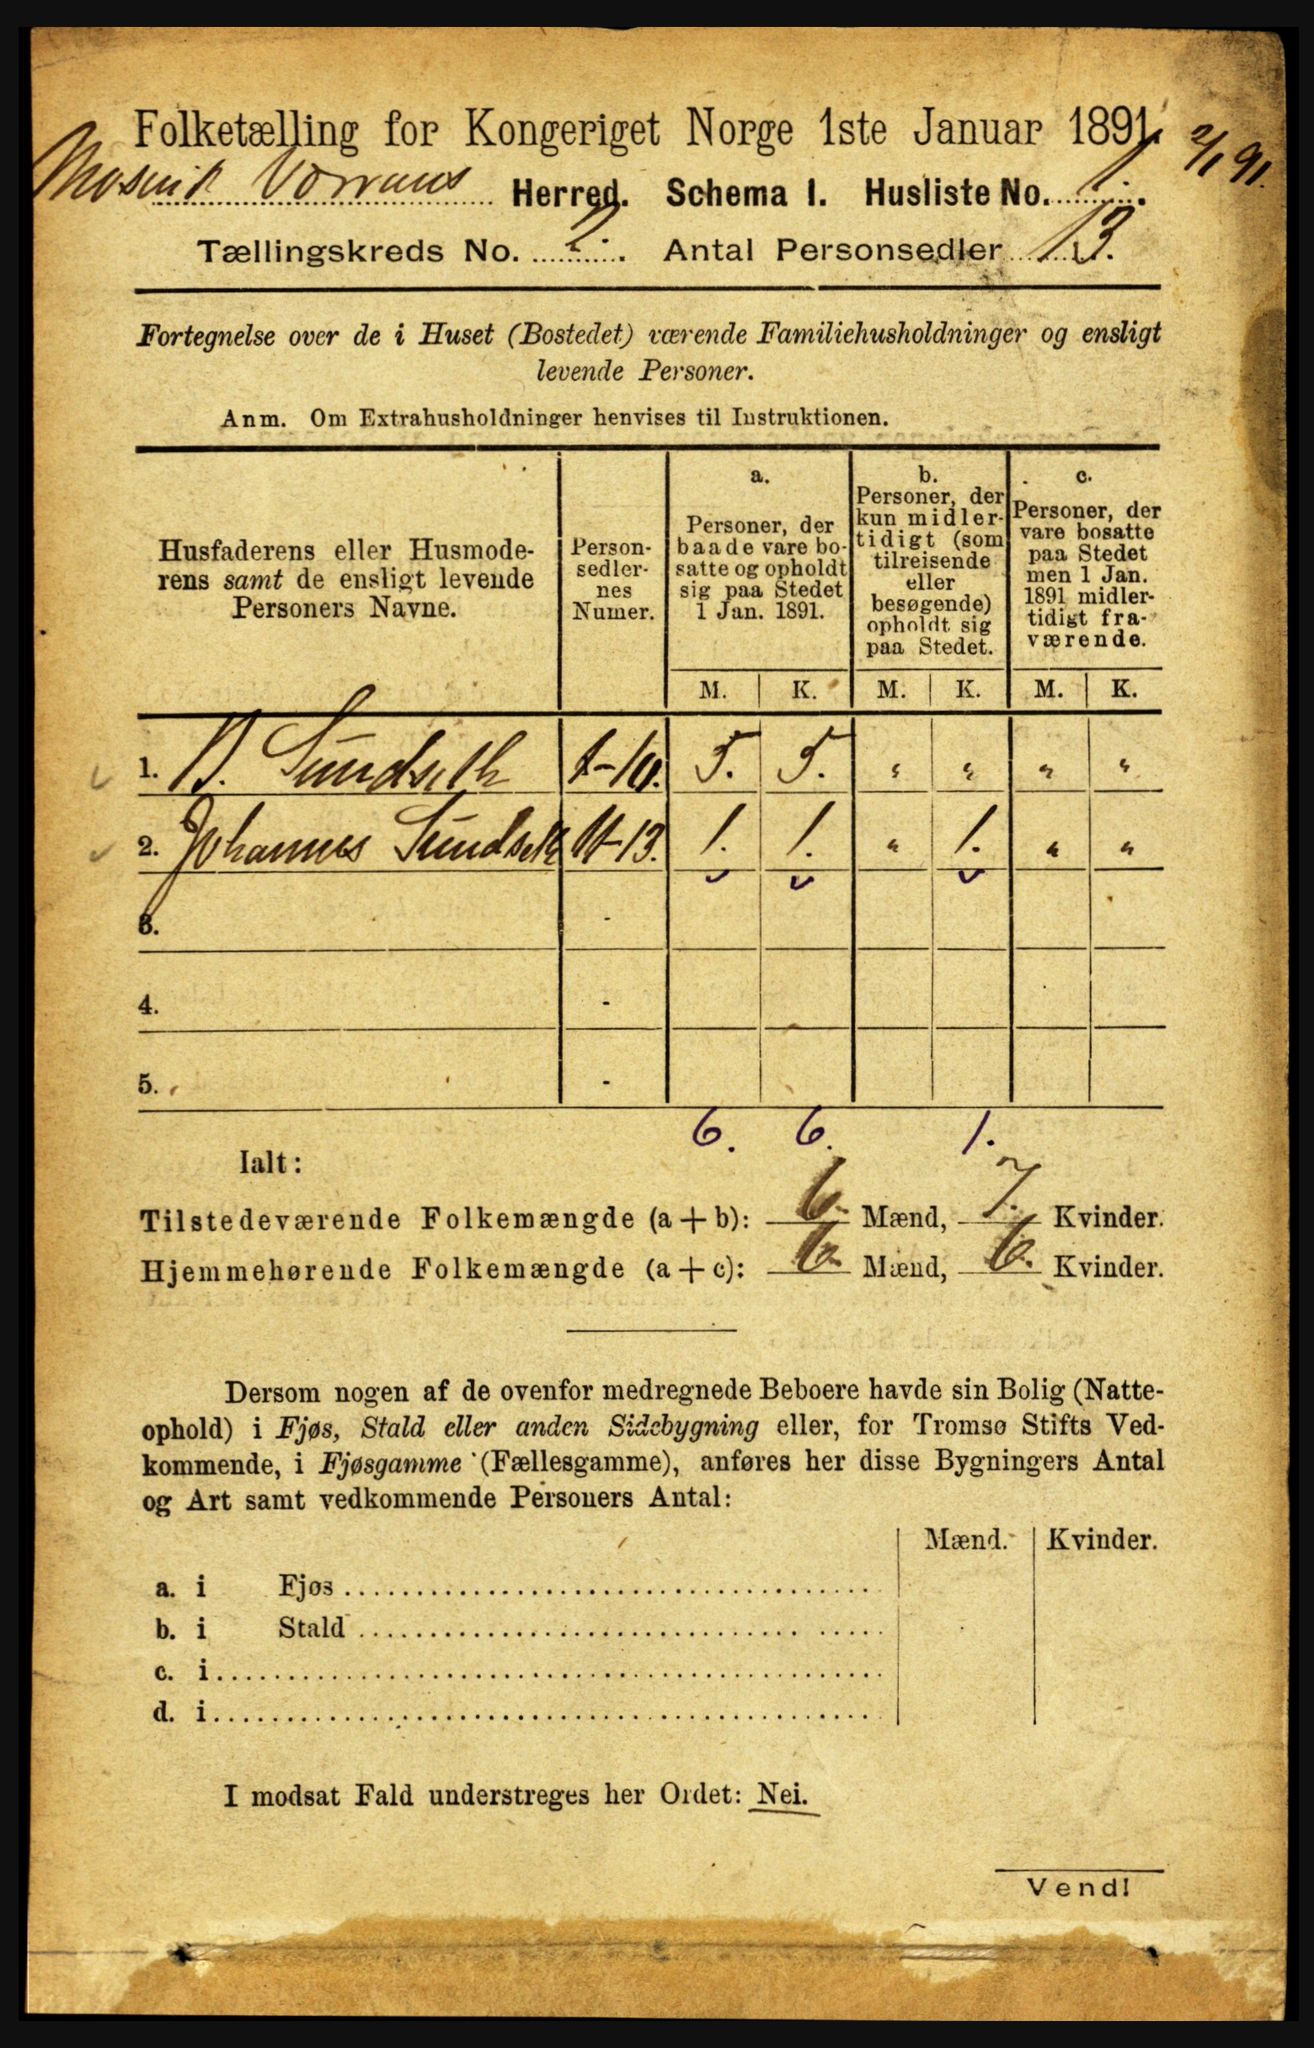 Folketælling for Kongeriget Norge 1ste Januar 1891.
2/1 91.
Mosvik Vorrans Herred. Schema I. Husliste No. 1.
Tællingskreds No. 2. Antal Personsedler 13.
Fortegnelse over de i Huset (Bostedet) værende Familiehusholdninger og ensligt
levende Personer.
Anm. Om Extrahusholdninger henvises til Instruktionen.
Husfaderens eller Husmode-
rens samt de ensligt levende
Personers Navne.
Person-
sedler-
nes
Numer.
a.
Personer, der
baade vare bo-
satte og opholdt
sig paa Stedet
1 Jan. 1891.
b.
Personer, der
kun midler-
tidigt (som
tilreisende
eller
besøgende)
opholdt sig
paa Stedet.
c.
Personer, der
vare bosatte
paa Stedet
men 1 Jan.
1891 midler-
tidigt fra-
værende.
M. K. M. K. M. K.
1. Sundseth 1-10. 5. 5. " " " "
2. Johannes Sundseth 11-13. 1. 1. " 1. " "
3. -
4. -
5. -
6. 6. 1.
Ialt:
Tilstedeværende Folkemængde (a+b): 6. Mænd, 7. Kvinder.
Hjemmehørende Folkemængde (a+c): 6. Mænd, 6. Kvinder.
Dersom nogen af de ovenfor medregnede Beboere havde sin Bolig (Natte-
ophold) i Fjøs, Stald eller anden Sidebygning eller, for Tromsø Stifts Ved-
kommende, i Fjøsgamme (Fællesgamme), anføres her disse Bygningers Antal
og Art samt vedkommende Personers Antal:
Mænd. Kvinder.
a. i Fjøs
b. i Stald
c. i
d. i
I modsat Fald understreges her Ordet: Nei.
Vend!